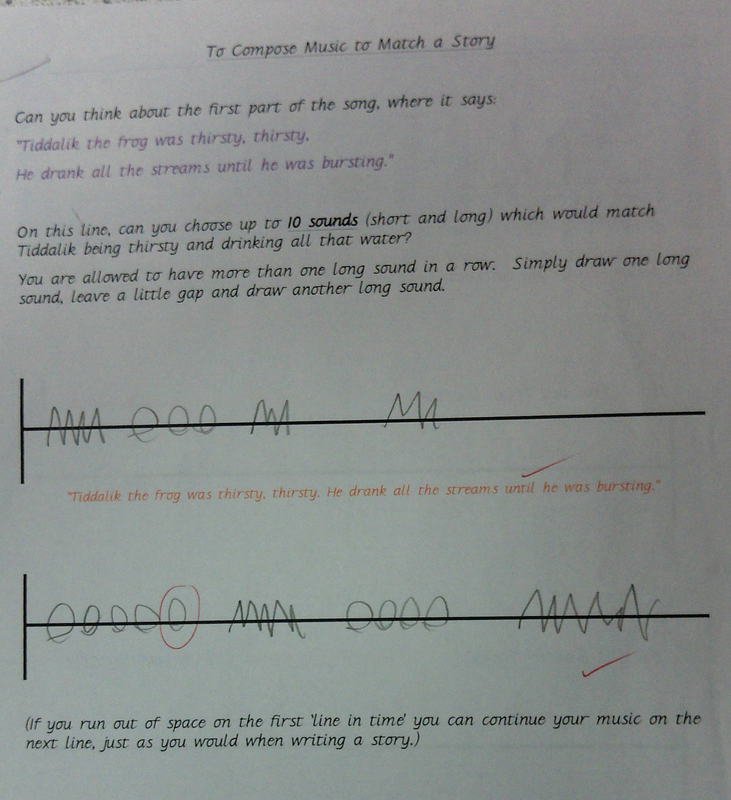 To Compose Music to Match a Story
Can you think about the first part of the song, where it says:
"Tiddalik the frog was thirsty, thirsty,
He drank all the streams until he was bursting."
On this line, can you choose up to 10 sounds (short and long) which would match
Tiddalik being thirsty and drinking all that water?
You are allowed to have more than one long sound in a row. Simply draw one long
sound, leave a little gap and draw another long sound.
"Tiddalik the frog was thirsty, thirsty. He drank all the streams until he was bursting."
(If you run out of space on the first 'line in time' you can continue your music on the
next line, just as you would when writing a story.)